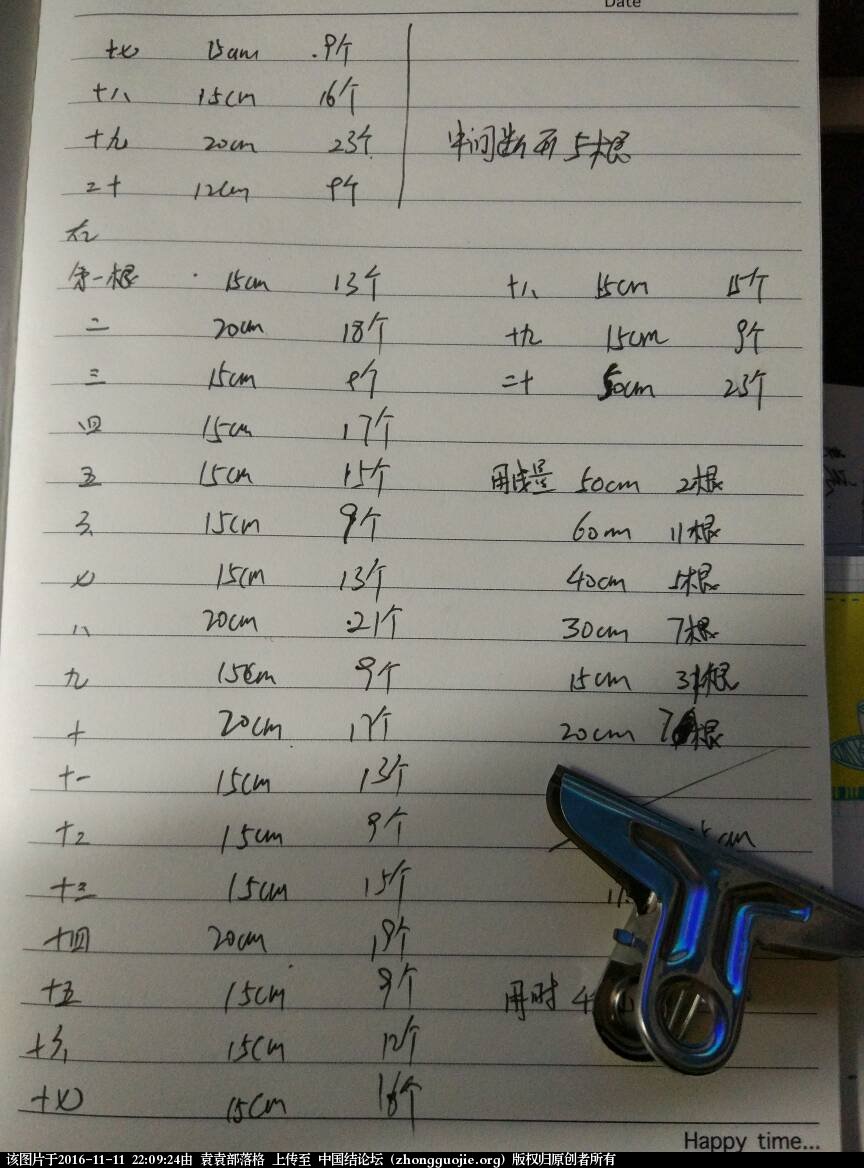 Date
十七 15cm 9个
十八 15cm 16个
十九 20cm 23个 中间断开5根
二十 12cm 9个
右
第一根 15cm 13个 十八 15cm 15个
二 20cm 18个 十九 15cm 9个
三 15cm 9个 二十 50cm 23个
四 15cm 17个
五 15cm 15个 用线量 50cm 2根
六 15cm 9个 60cm 11根
七 15cm 13个 40cm 5根
八 20cm 21个 30cm 7根
九 15cm 9个 15cm 31根
十 20cm 17个 20cm 7根
十一 15cm 13个
十二 15cm 9个
十三 15cm 15个
十四 20cm 19个
十五 15cm 9个 用时 4
十六 15cm 12个
十七 15cm 16个
Happy time...
该图片于2016-11-11 22:09:24由 袁袁部落格 上传至 中国结论坛 (zhongguojie.org) 版权归原创者所有